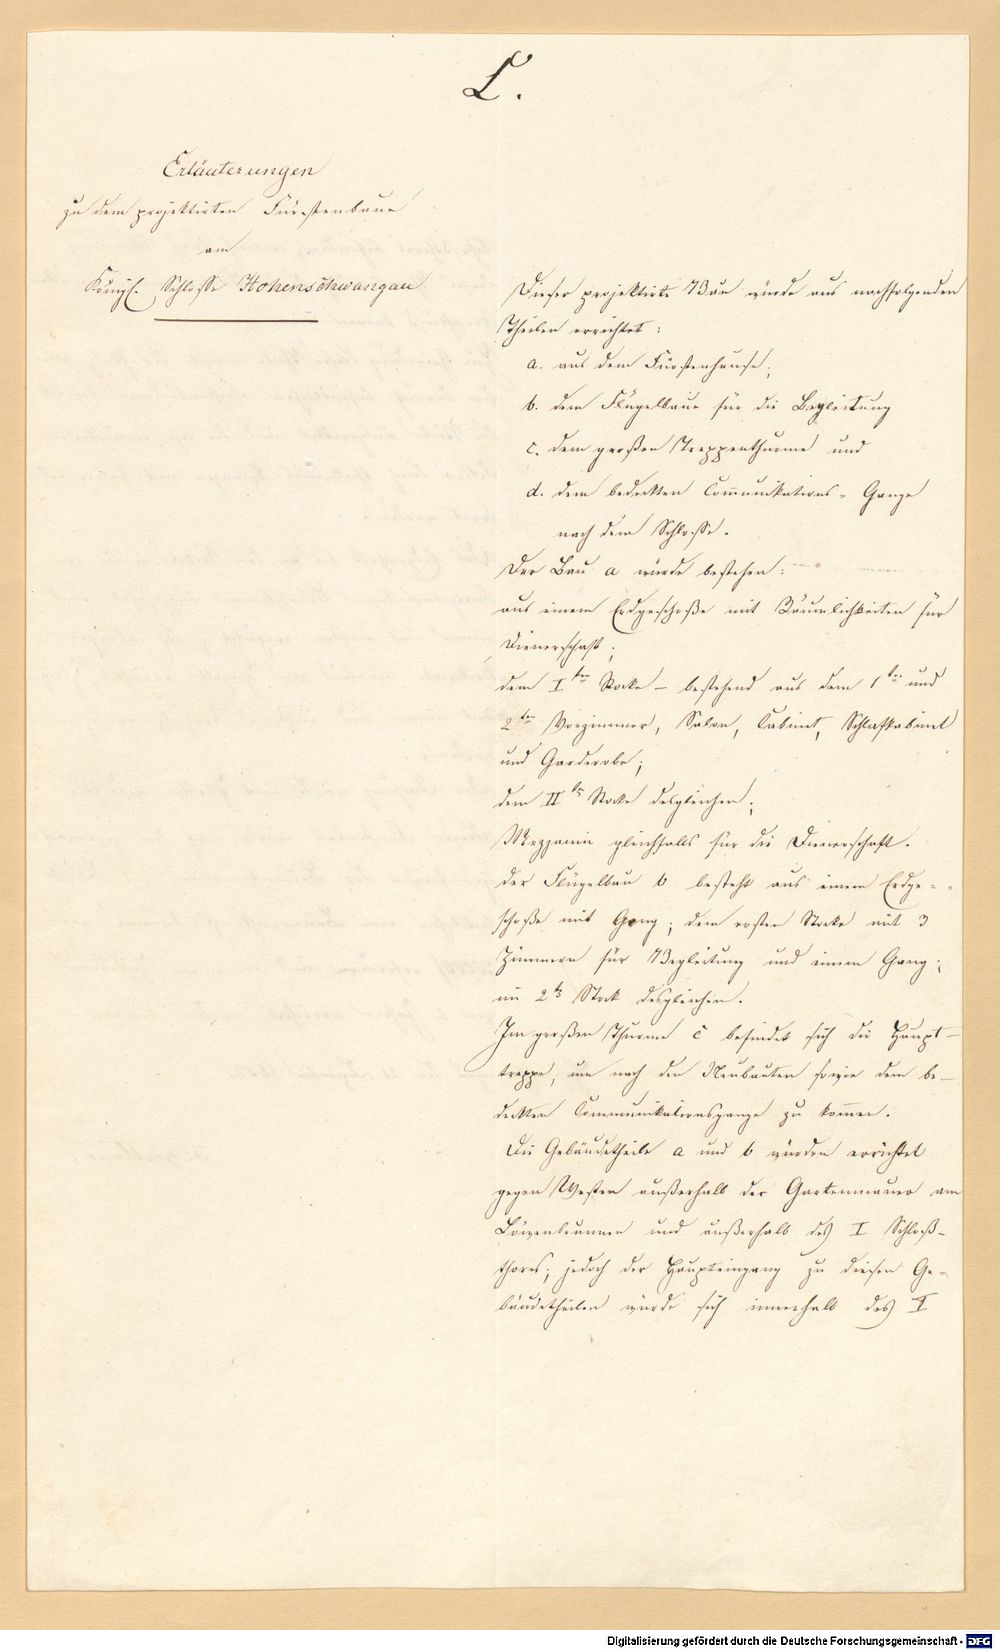 L.
Erläuterungen
zu dem projektirten Fürstenbaue
am
Königl. Schlosse Hohenschwangau
Dieser projektirte Bau würde aus nachfolgenden
Theilen errichtet:
a. aus dem Fürstenhause;
b. dem Flügelbaue für die Begleitung
c. dem großen Treppenthurme und
d. dem bedeckten Communikations-Gange
nach dem Schlosse.
Der Bau a würde bestehen:
aus einem Erdgeschoße mit Räumlichkeiten für
Dienerschaft;
dem I ten Stocke – bestehend aus dem 1ten und
2ten Vorzimmer, Salon, Cabinet, Schlafkabinet
und Garderobe;
dem II ten Stocke desgleichen;
Mezzanin gleichfalls für die Dienerschaft.
Der Flügelbau b besteht aus einem Erdge-
schoße mit Gang; dem ersten Stocke mit 3
Zimmern für Begleitung und einem Gang;
im 2ten Stock desgleichen.
Im großen Thurme c befindet sich die Haupt-
treppe, um nach den Neubauten sowie dem be-
deckten Communikationsgange zu kommen.
Die Gebäudetheile a und b würden errichtet
gegen Westen außerhalb der Gartenmauer am
Löwenbrunnen und außerhalb des I Schloß-
thores; jedoch der Haupteingang zu diesen Ge-
bäudetheilen würde sich innerhalb des I
Digitalisierung gefördert durch die Deutsche Forschungsgemeinschaft - DFG